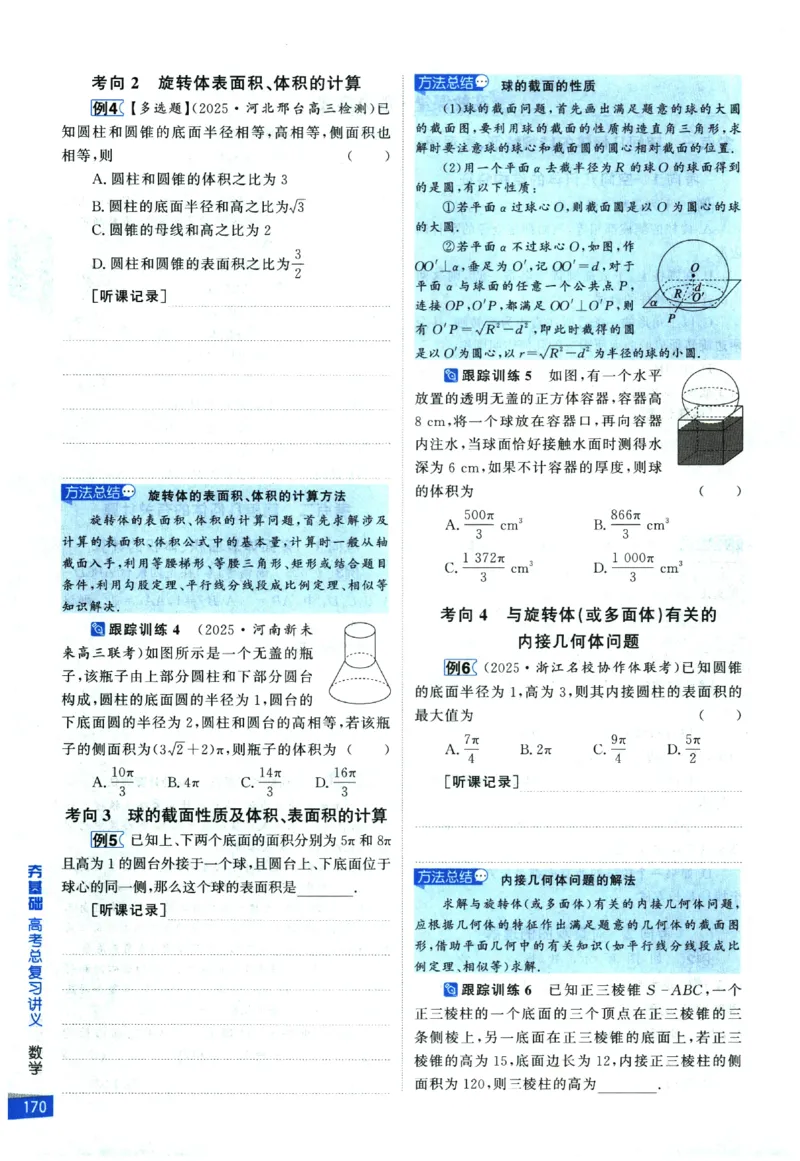 考向 2 旋转体表面积、体积的计算
例4 【多选题】(2025·河北邢台高三检测)已
知圆柱和圆锥的底面半径相等,高相等,侧面积也
相等,则 ( )
A.圆柱和圆锥的体积之比为 3
B.圆柱的底面半径和高之比为√3
C.圆锥的母线和高之比为 2
D.圆柱和圆锥的表面积之比为3/2
[听课记录]
方法总结 旋转体的表面积、体积的计算方法
旋转体的表面积、体积的计算问题,首先求解涉及
计算的表面积、体积公式中的基本量,计算时一般从轴
截面入手,利用等腰梯形、等腰三角形、矩形或结合题目
条件,利用勾股定理、平行线分线段成比例定理、相似等
知识解决.
跟踪训练 4 (2025·河南新未
来高三联考)如图所示是一个无盖的瓶
子,该瓶子由上部分圆柱和下部分圆台
构成,圆柱的底面圆的半径为 1,圆台的
下底面圆的半径为 2,圆柱和圆台的高相等,若该瓶
子的侧面积为(3√2+2)π,则瓶子的体积为 ( )
A.10π/3 B.4π C.14π/3 D.16π/3
考向 3 球的截面性质及体积、表面积的计算
例5 已知上、下两个底面的面积分别为 5π 和 8π
且高为 1 的圆台外接于一个球,且圆台上、下底面位于
球心的同一侧,那么这个球的表面积是________.
[听课记录]
夯基础 高考总复习讲义 数学
170
方法总结 球的截面的性质
(1)球的截面问题,首先画出满足题意的球的大圆
的截面图,要利用球的截面的性质构造直角三角形,求
解时要注意球的球心和截面圆的圆心相对截面的位置.
(2)用一个平面 α 去截半径为 R 的球 O 的球面得到
的是圆,有以下性质:
①若平面 α 过球心 O,则截面圆是以 O 为圆心的球
的大圆.
②若平面 α 不过球心 O,如图,作
OO′⊥α,垂足为 O′,记 OO′=d,对于
平面 α 与球面的任意一个公共点 P,
连接 OP,O′P,都满足 OO′⊥O′P,则
有 O′P=√(R²-d²),即此时截得的圆
是以 O′为圆心,以 r=√(R²-d²)为半径的球的小圆.
O
R d
O′
α
P
跟踪训练 5 如图,有一个水平
放置的透明无盖的正方体容器,容器高
8 cm,将一个球放在容器口,再向容器
内注水,当球面恰好接触水面时测得水
深为 6 cm,如果不计容器的厚度,则球
的体积为 ( )
A.500π/3 cm³ B.866π/3 cm³
C.1 372π/3 cm³ D.1 000π/3 cm³
考向 4 与旋转体(或多面体)有关的
内接几何体问题
例6 (2025·浙江名校协作体联考)已知圆锥
的底面半径为 1,高为 3,则其内接圆柱的表面积的
最大值为 ( )
A.7π/4 B.2π C.9π/4 D.5π/2
[听课记录]
方法总结 内接几何体问题的解法
求解与旋转体(或多面体)有关的内接几何体问题,
应根据几何体的特征作出满足题意的几何体的截面图
形,借助平面几何中的有关知识(如平行线分线段成比
例定理、相似等)求解.
跟踪训练 6 已知正三棱锥 S-ABC,一个
正三棱柱的一个底面的三个顶点在正三棱锥的三
条侧棱上,另一底面在正三棱锥的底面上,若正三
棱锥的高为 15,底面边长为 12,内接正三棱柱的侧
面积为 120,则三棱柱的高为________.